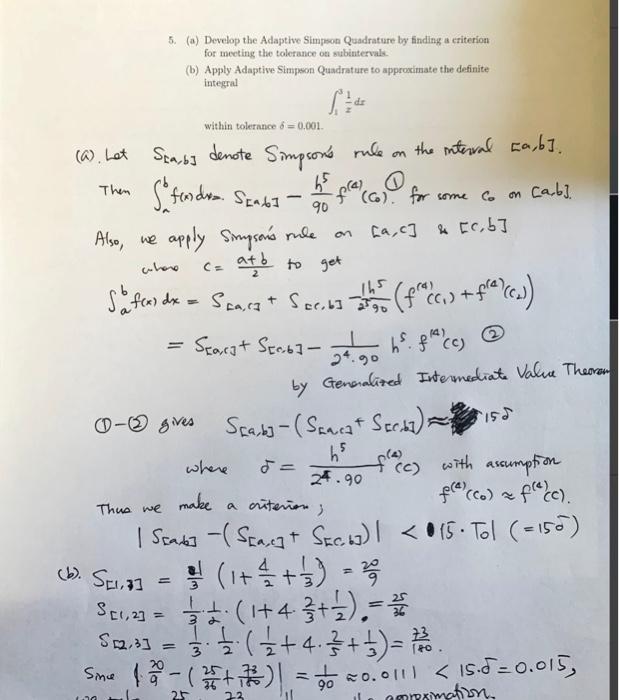 5. (a) Develop the Adaptive Simpson Quadrature by finding a criterion
for meeting the tolerance on subintervals.
(b) Apply Adaptive Simpson Quadrature to approximate the definite
integral
∫₁³ 1/x dx
within tolerance δ = 0.001.
(a). Let S[a,b] denote Simpson's rule on the interval [a,b].
Then ∫ₐᵇ f(x)dx = S[a,b] − h⁵/90 f⁽⁴⁾(c₀). ① for some c₀ on [a,b].
Also, we apply Simpson's rule on [a,c] & [c,b]
where c = a+b/2 to get
∫ₐᵇ f(x) dx = S[a,c] + S[c,b] − 1/2⁵ h⁵/90 (f⁽⁴⁾(c₁) + f⁽⁴⁾(c₂))
= S[a,c] + S[c,b] − 1/2⁴·90 h⁵· f⁽⁴⁾(c) ②
by Generalized Intermediate Value Theorem
①−② gives S[a,b] − (S[a,c] + S[c,b]) ≈ 15δ
where δ = h⁵/2⁴·90 f⁽⁴⁾(c) with assumption
f⁽⁴⁾(c₀) ≈ f⁽⁴⁾(c).
Thus we make a criterion;
| S[a,b] − (S[a,c] + S[c,b]) | < 15·Tol (=15δ)
(b). S[1,3] = 1/3 (1 + 4/2 + 1/3) = 20/9
S[1,2] = 1/3 · 1/2 · (1 + 4·2/3 + 1/2) = 25/36
S[2,3] = 1/3 · 1/2 · (1/2 + 4·2/5 + 1/3) = 73/180.
Since | 20/9 − (25/36 + 73/180) | = 1/90 ≈ 0.0111 < 15·δ = 0.015,
approximation.